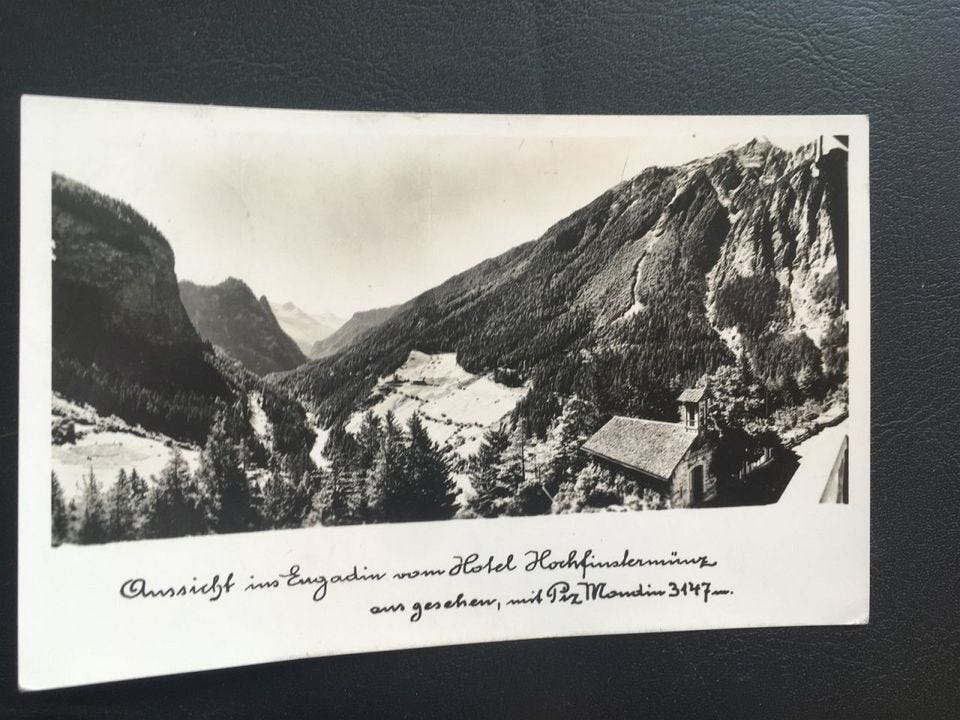 Aussicht ins Engadin vom Hotel Hochfinstermünz
aus gesehen, mit Piz Mondin 3147 m.